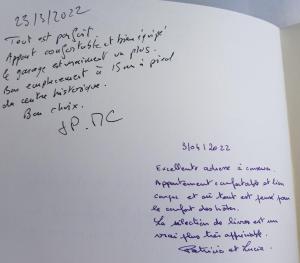 23/3/2022
Tout est parfait.
Appart confortable et bien équipé
le garage est vraiment un plus.
Bon emplacement à 15 mn à pied
du centre historique.
Bon choix.
JP. MC
3/04/2022
Excellente adresse à
Appartement confortable et bien
conçue et où tout est pensé pour
le confort des hôtes.
La sélection de livres est un
vrai plus très appréciable.
Patricia et Lucie.